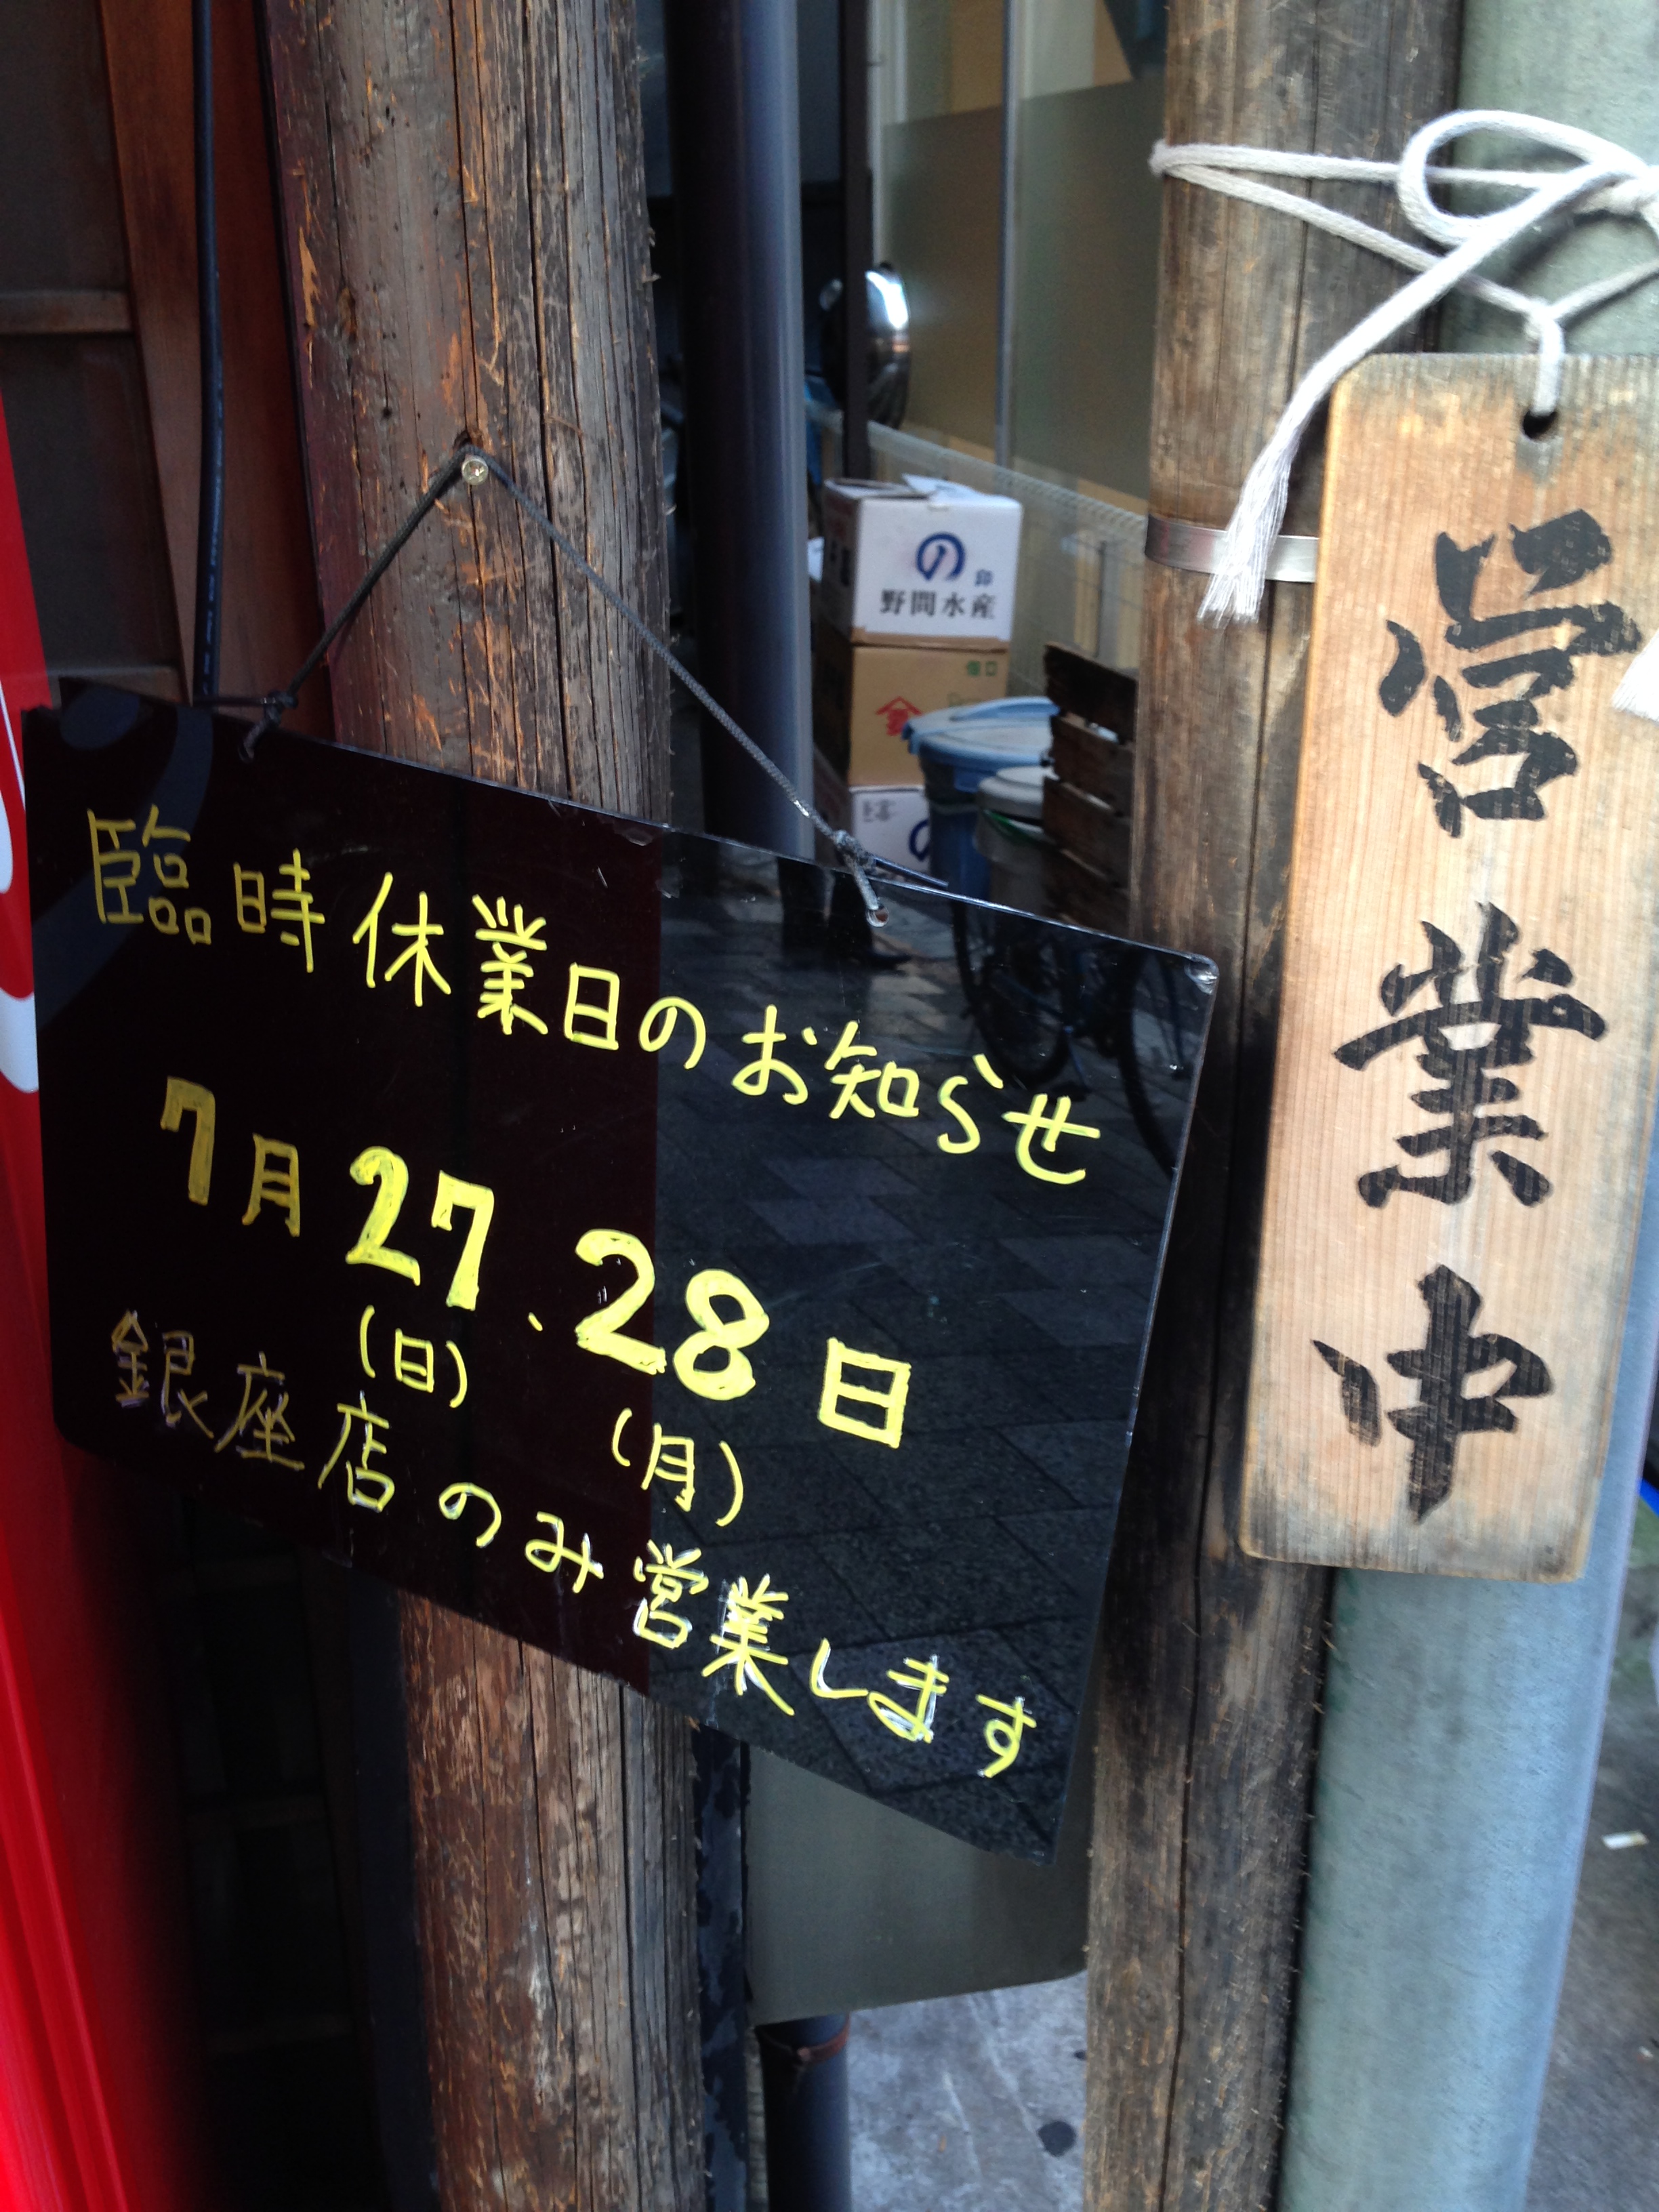 臨時休業日のお知らせ
7月27、28日
(日)
(月)
銀座店のみ営業します
営業中
の印
野間水産